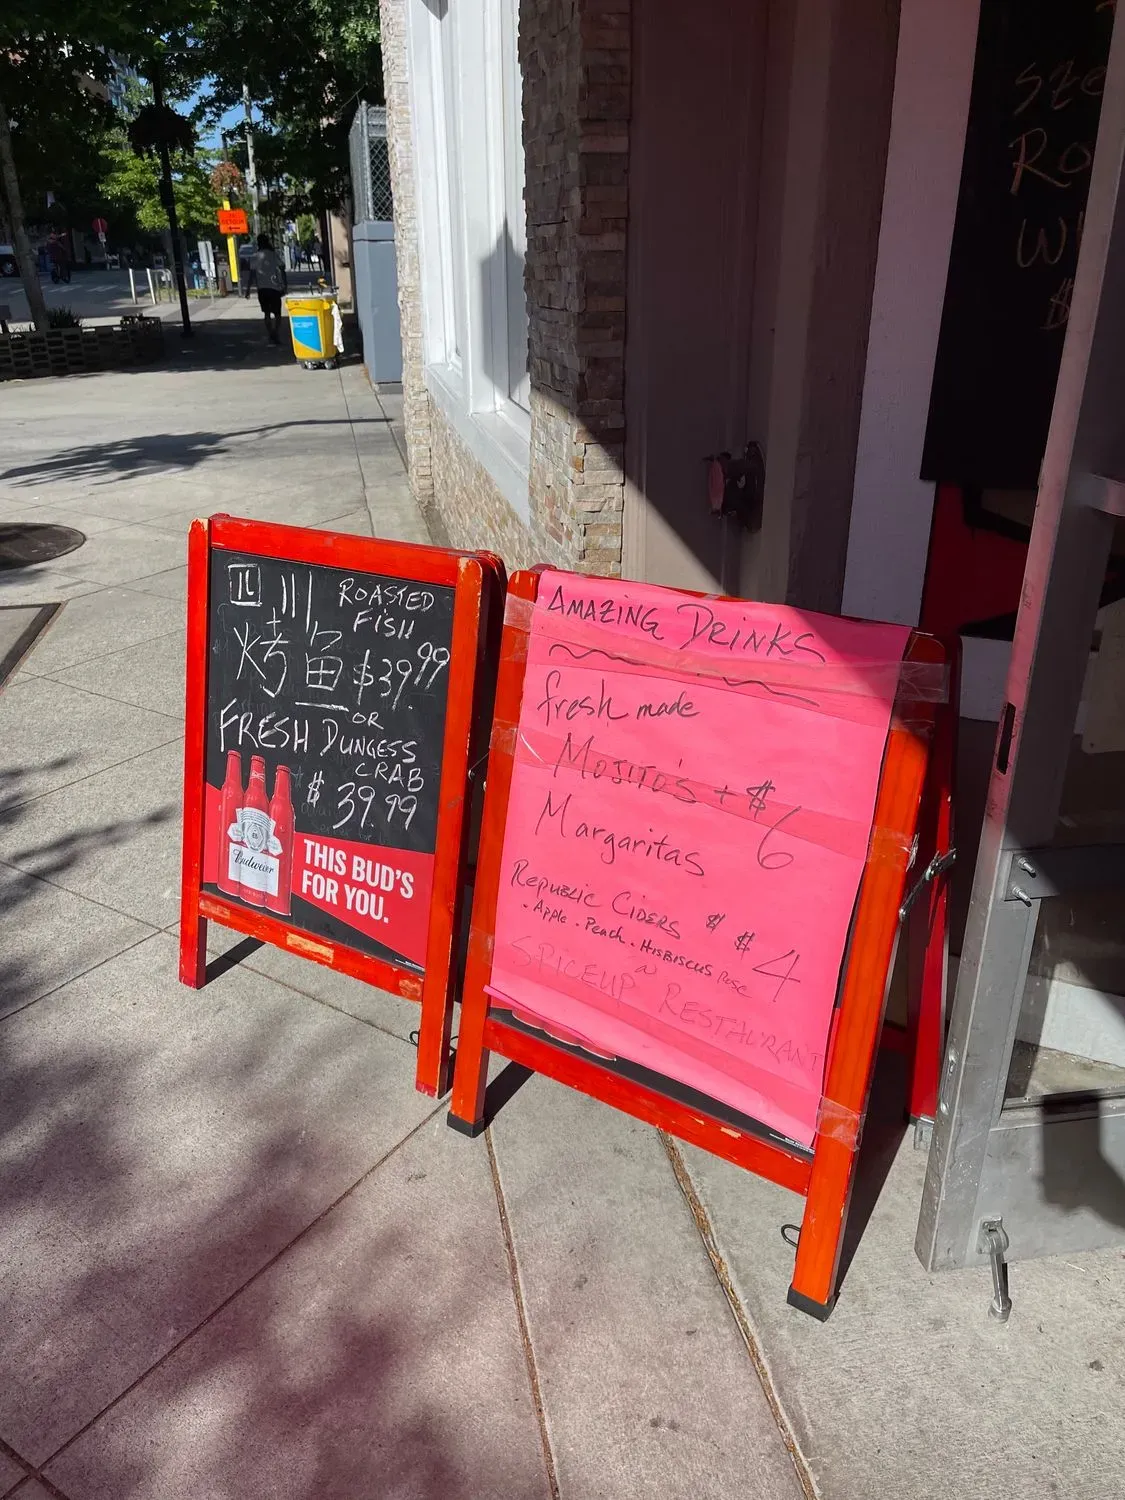 四川
ROASTED
FISH
烤鱼 $39.99
OR
FRESH DUNGESS
CRAB
$ 39.99
Budweiser
THIS BUD'S
FOR YOU.
AMAZING DRINKS
fresh made
MOJITO'S + $6
Margaritas
REPUBLIC CIDERS $ $4
• Apple • Peach • HISBISCUS ROSE
@
SPICEUP RESTAURANT
DETOUR
SZE
RO
$